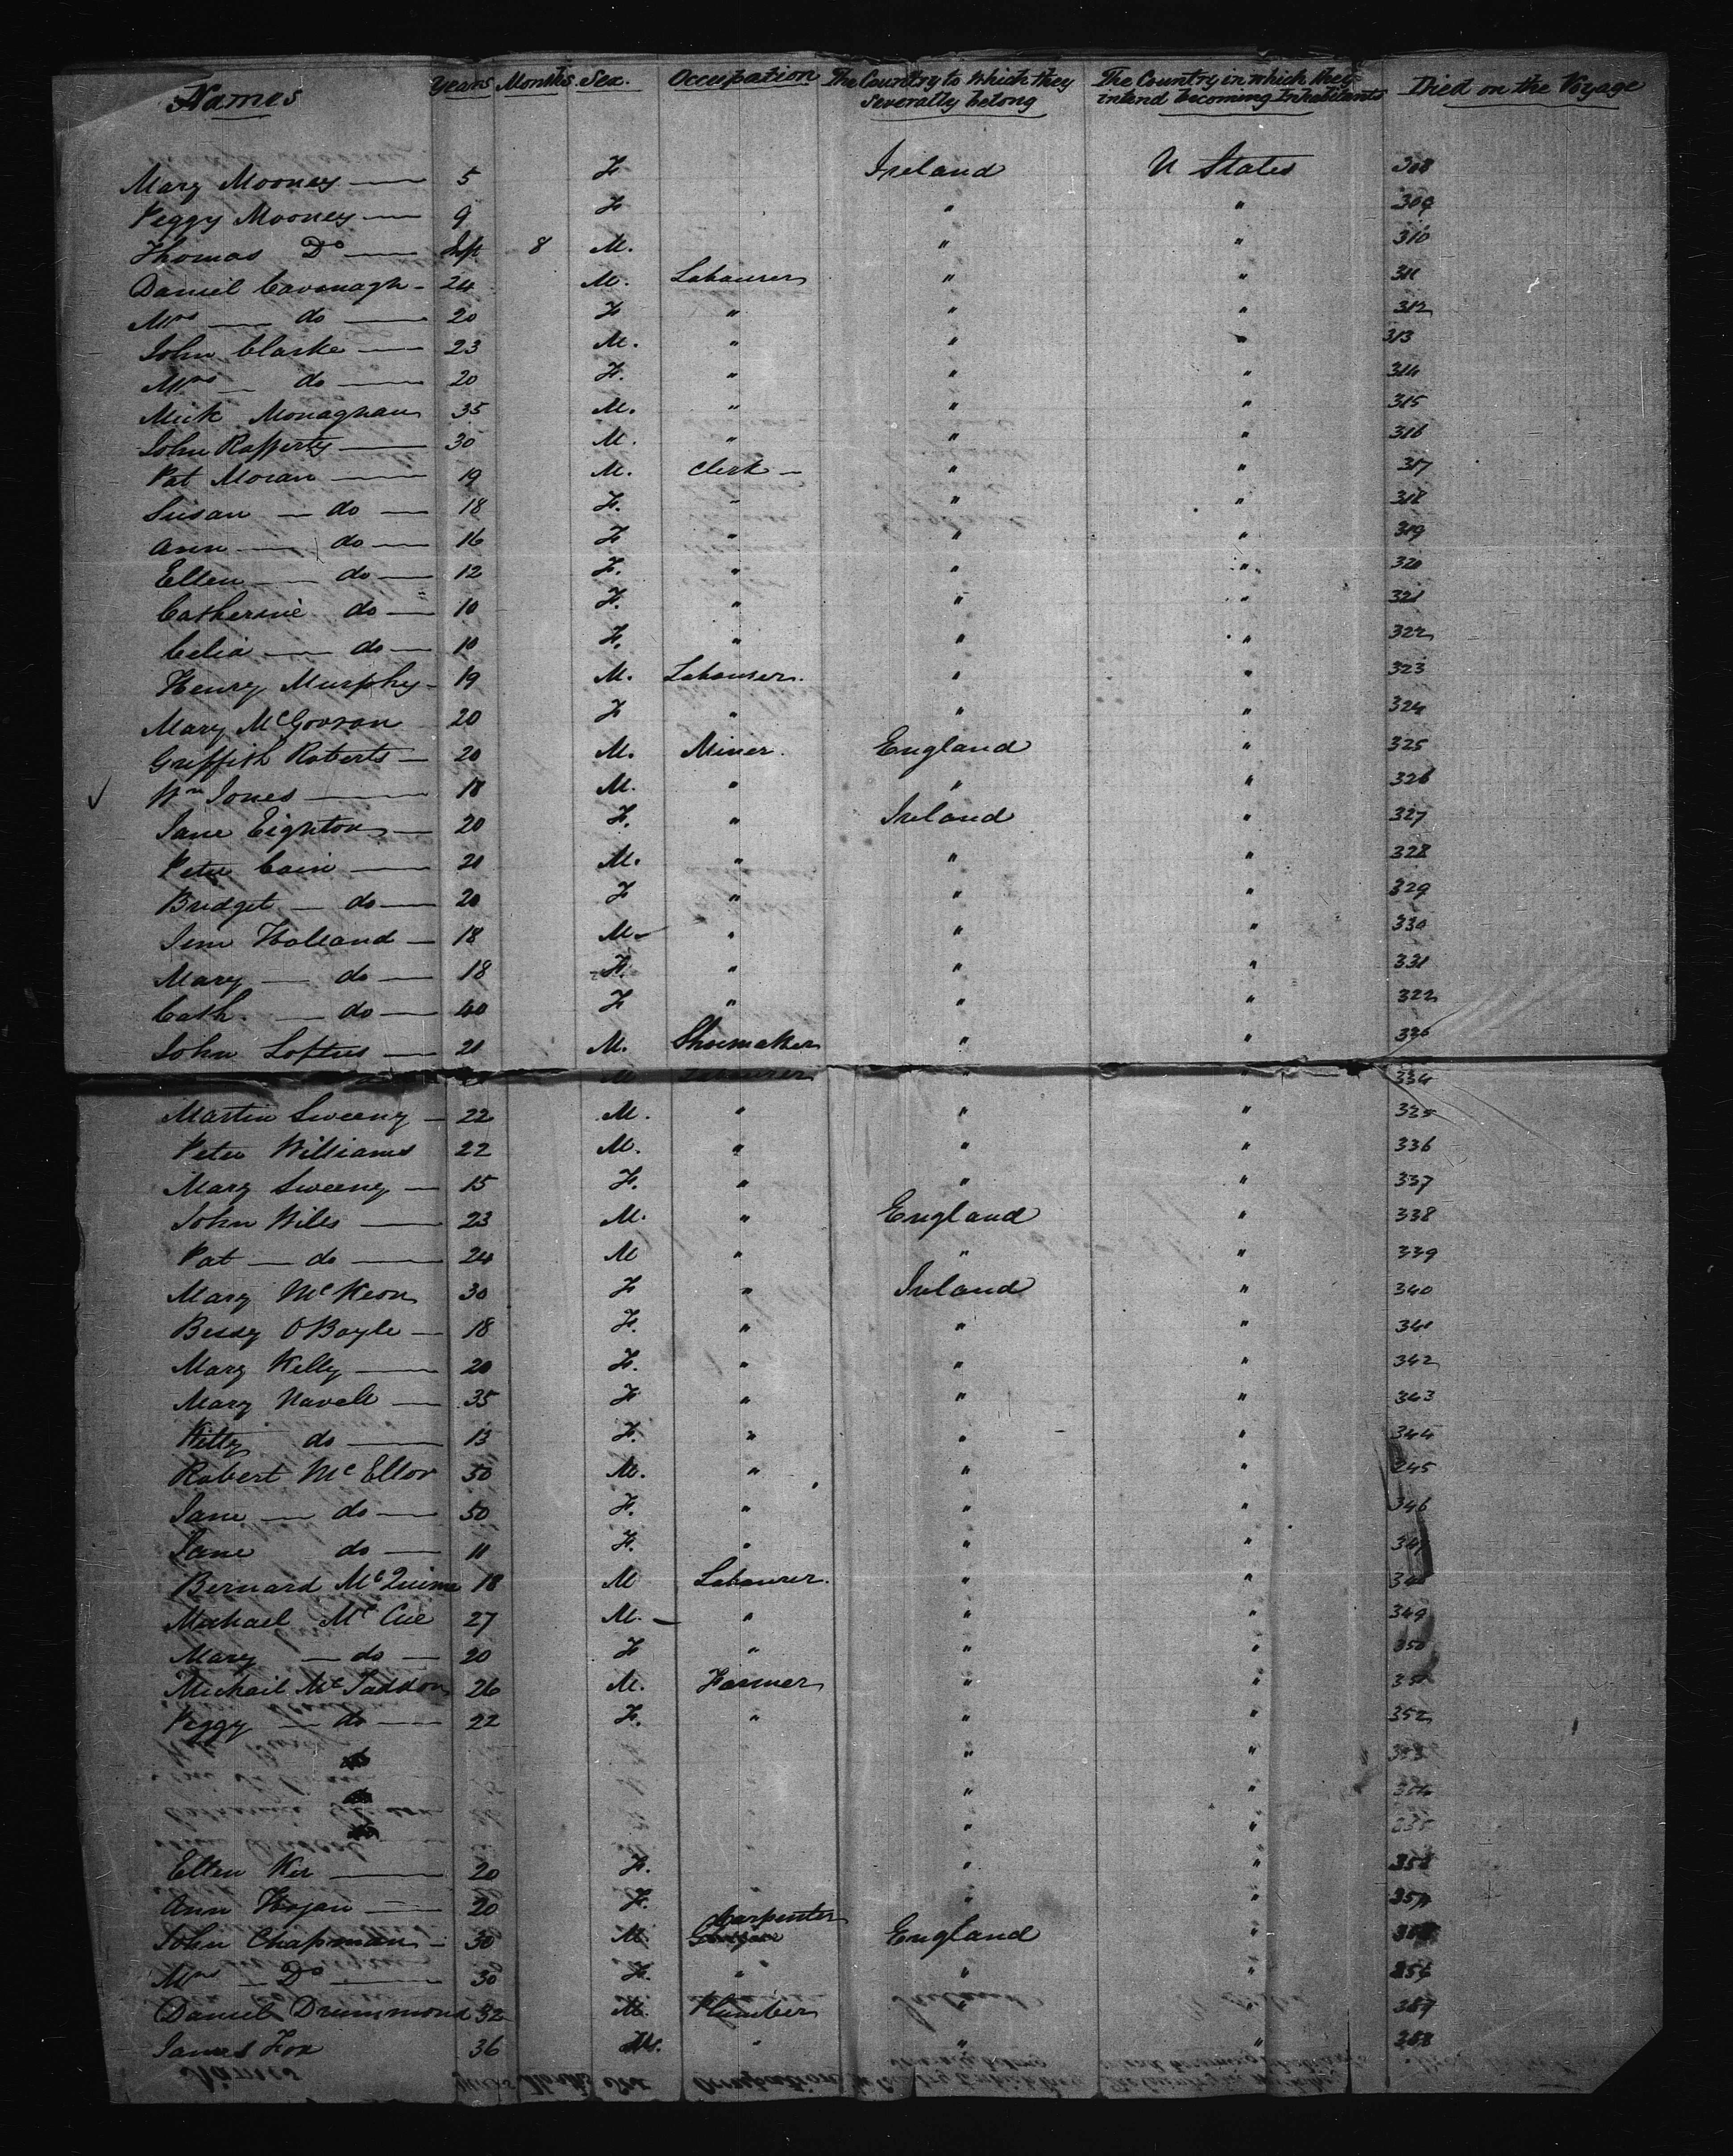 Names Years Months Sex. Occupation The Country to which they severally belong The Country in which they intend becoming Inhabitants Died on the Voyage
Mary Mooney 5 F Ireland U States 308
Peggy Mooney 9 F " " 309
Thomas Do Inft 8 M. " " 310
Daniel Cavanagh 24 M. Labourer " " 311
Mrs do 20 F " " " 312
John Clarke 23 M. " " " 313
Mrs do 20 F. " " " 314
Mick Monaghan 35 M. " " " 315
John Rafferty 30 M. " " " 316
Pat Moran 19 M. Clerk " " 317
Susan do 18 F. " " " 318
Ann do 16 F " " " 319
Ellen do 12 F. " " " 320
Catherine do 10 F. " " " 321
Celia do 10 F. " " " 322
Henry Murphy 19 M. Labourer. " " 323
Mary McGovran 20 F " " " 324
Griffith Roberts 20 M. Miner. England " 325
Wm Jones 18 M. " " " 326
Jane Eighton 20 F. " Ireland " 327
Peter Cain 21 M. " " " 328
Bridget do 20 F " " " 329
Jim Holland 18 M. " " " 330
Mary do 18 F. " " " 331
Cath. do 40 F " " " 322
John Loftus 21 M. Shoemaker " " 336
M Labourer " " 334
Martin Sweeny 22 M. " " " 335
Peter Williams 22 M. " " " 336
Mary Sweeny 15 F. " " " 337
John Wiles 23 M. " England " 338
Pat do 24 M " " " 339
Mary McKeon 30 F " Ireland " 340
Bessy OBoyle 18 F. " " " 341
Mary Kelly 20 F. " " " 342
Mary Navell 35 F " " " 343
Kitty do 13 F. " " " 344
Robert McEllor 50 M. " " " 245
Jane do 50 F. " " " 346
Jane do 11 F. " " " 347
Bernard McQuinn 18 M Labourer. " " 348
Michael McCue 27 M. " " " 349
Mary do 20 F " " " 350
Michail McFaddon 26 M. Farmer " " 351
Peggy do 22 F. " " " 352
do " " 353
do " " 354
do " "
Ellen Ker 20 F. " " 358
Ann Hogan 20 F. " " "
Carpenter
John Chapman 30 M England "
Mrs Do 30 F. " " "
Daniel Drummond 32 M. Plumber
James Fox 36 M. " " "